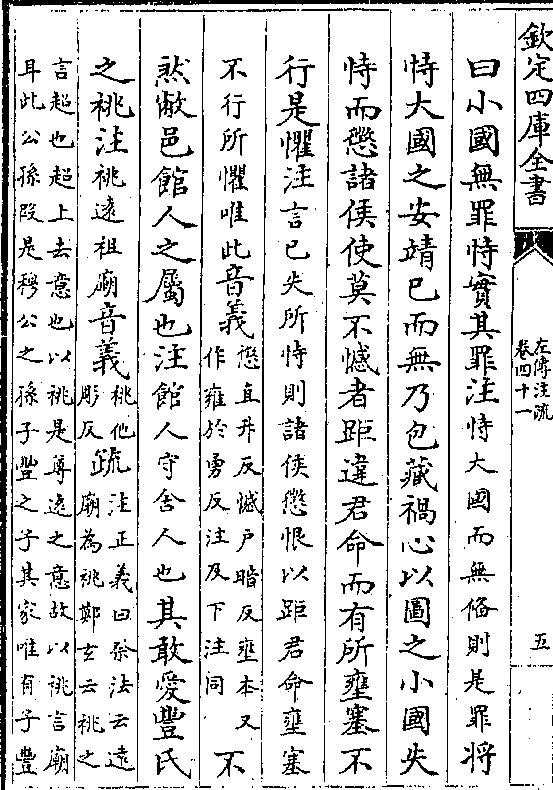 欽定四庫全書
左傳注疏
卷四十一
五
曰小國無罪恃實其罪注恃大國而無備則是罪將
恃大國之安靖己而無乃包藏禍心以圖之小國失
恃而懲諸侯使莫不憾者距違君命而有所壅塞不
行是懼注言已失所恃則諸侯懲恨以距君命壅塞
不行所懼唯此音義懲直升反憾户暗反壅本又
作雍於勇反注及下注同不
然敝邑館人之屬也注館人守舍人也其敢愛豐氏
之祧注祧遠祖廟音義祧他
彫反疏注正義曰祭法云遠
廟為祧鄭玄云祧之
言超也超上去意也以祧是尊遠之意故以祧言廟
耳此公孫段是穆公之孫子豐之子其家唯有子豐